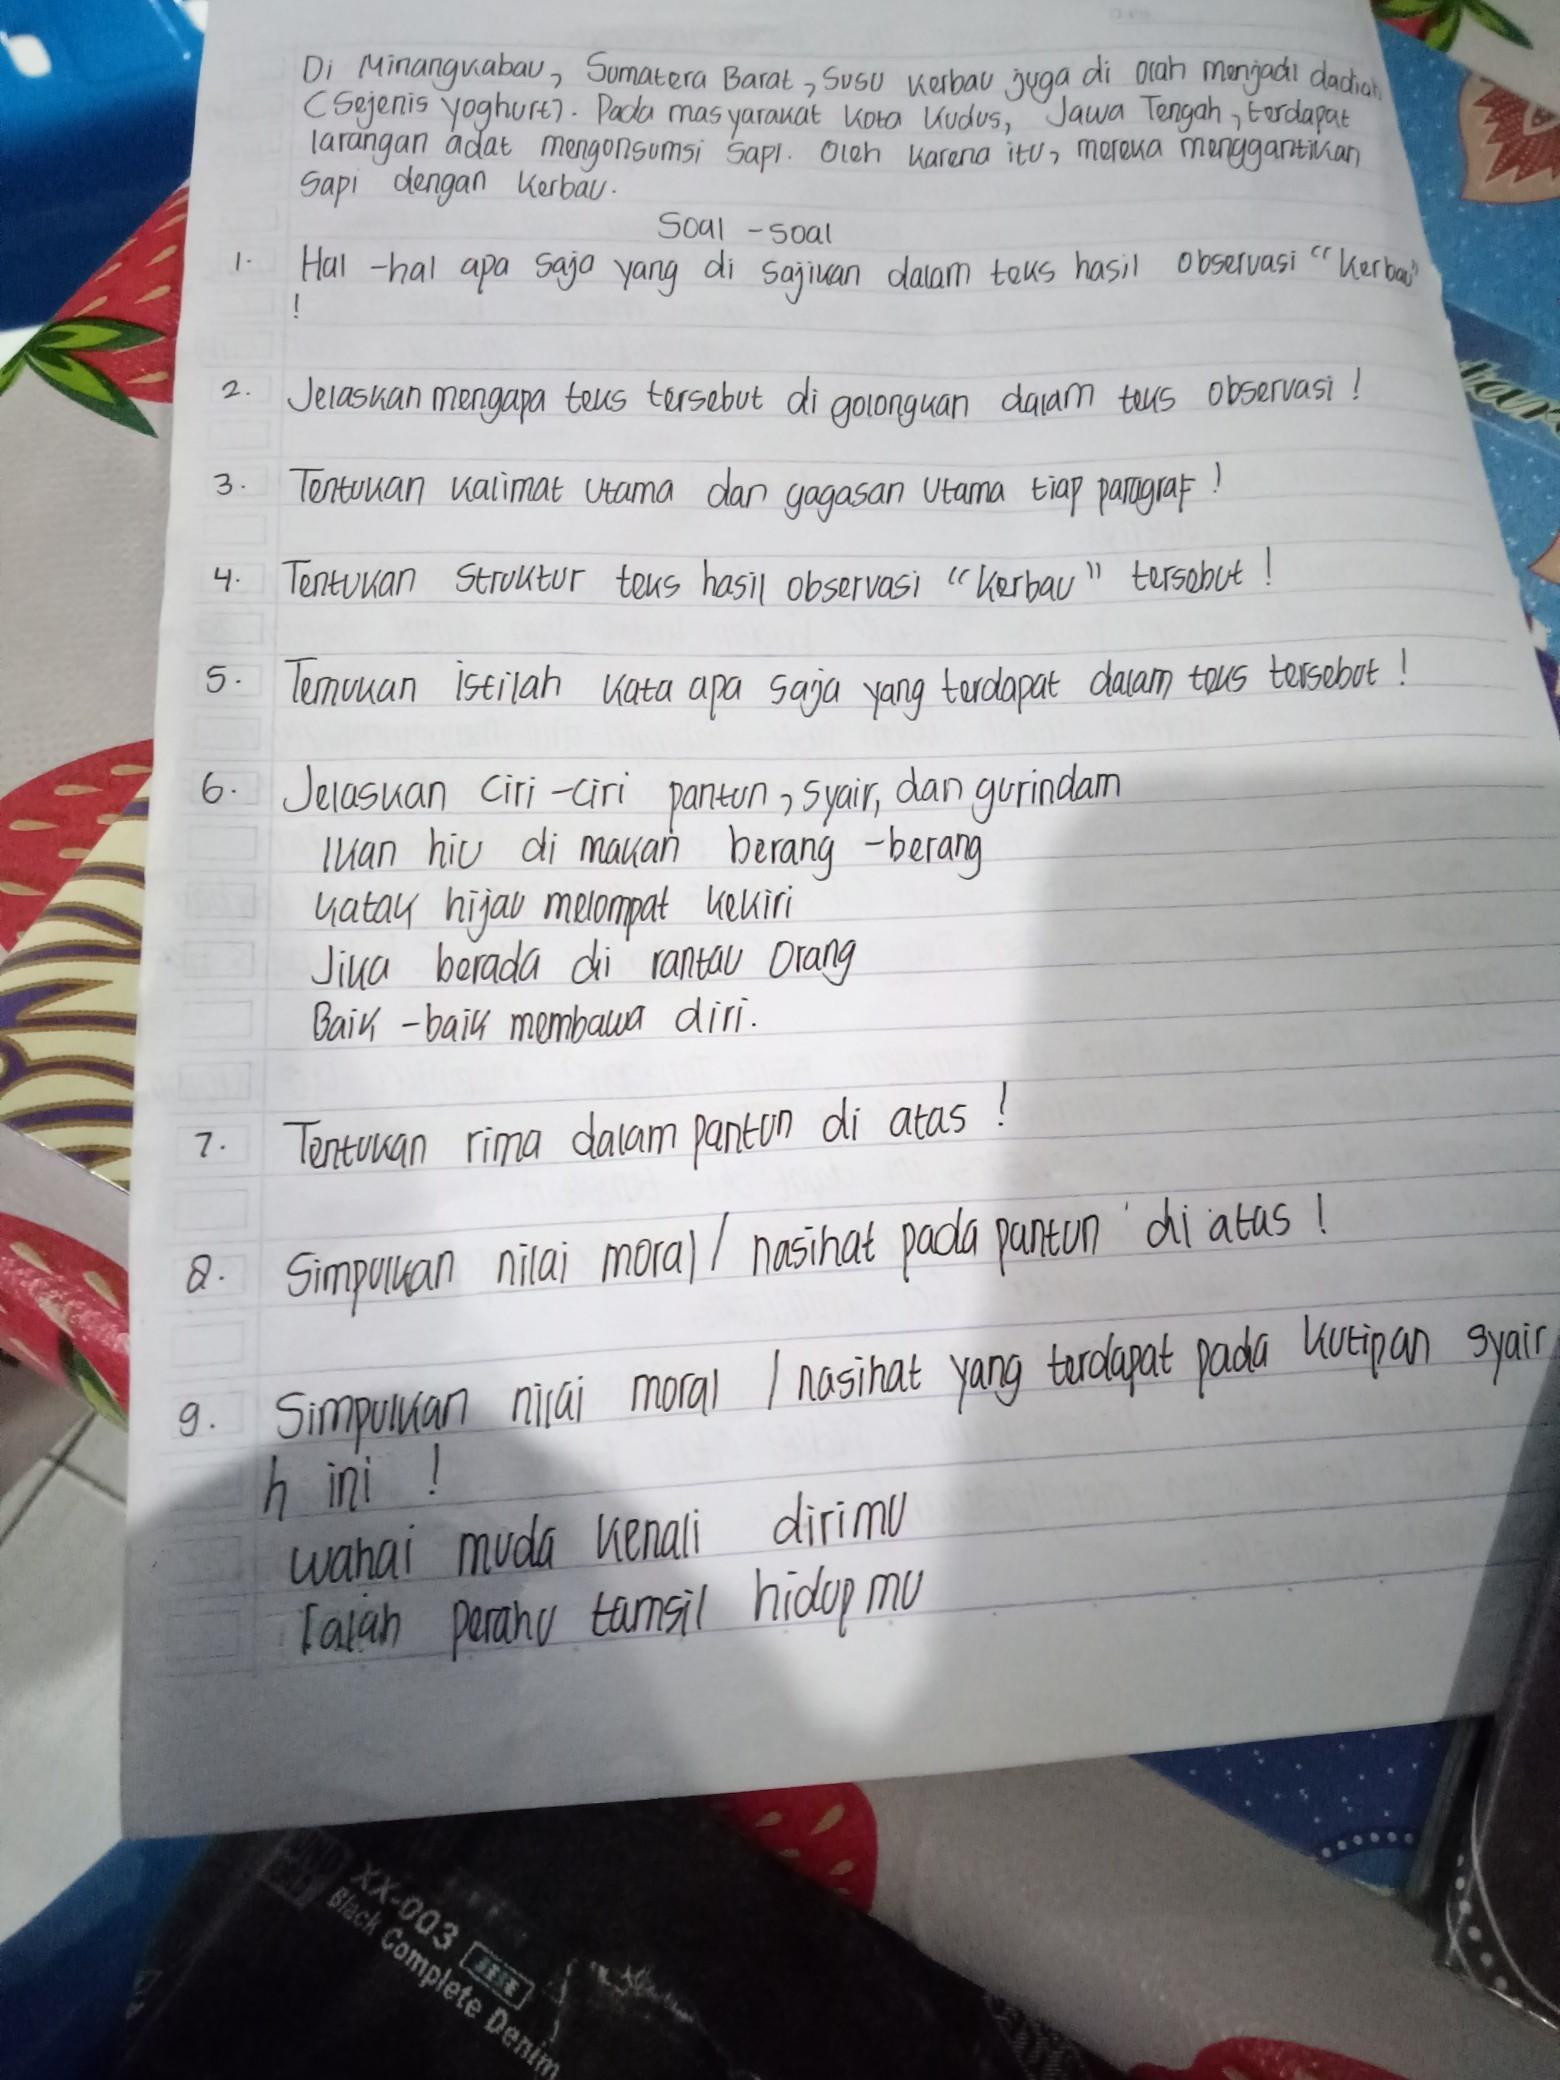 Di Minangkabau, Sumatera Barat, Susu kerbau juga di olah menjadi dadiah
(Sejenis yoghurt). Pada masyarakat kota kudus, Jawa Tengah, terdapat
larangan adat mengonsumsi sapi. Oleh karena itu, mereka menggantikan
Sapi dengan kerbau.
Soal - soal
1. Hal - hal apa saja yang di sajikan dalam teks hasil observasi "kerbau"
!
2. Jelaskan mengapa teks tersebut di golongkan dalam teks observasi !
3. Tentukan kalimat utama dan gagasan utama tiap paragraf !
4. Tentukan struktur teks hasil observasi "kerbau" tersebut !
5. Temukan istilah kata apa saja yang terdapat dalam teks tersebut !
6. Jelaskan ciri - ciri pantun, syair, dan gurindam
Ikan hiu di makan berang - berang
katak hijau melompat kekiri
Jika berada di rantau orang
Baik - baik membawa diri.
7. Tentukan rima dalam pantun di atas !
8. Simpulkan nilai moral / nasihat pada pantun di atas !
9. Simpulkan nilai moral / nasihat yang terdapat pada kutipan syair
h ini !
wahai muda kenali dirimu
Ialah perahu tamsil hidup mu
XX-003
Black Complete Denim